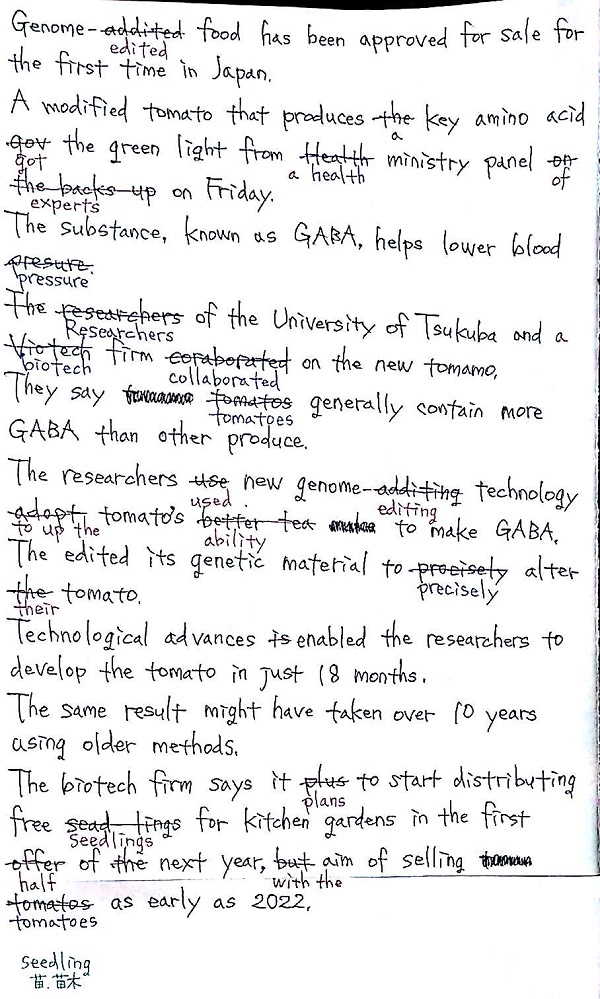 Genome-addited food has been approved for sale for
edited
the first time in Japan.
A modified tomato that produces the key amino acid
a
gov the green light from Health ministry panel on
got a health of
the backs up on Friday.
experts
The substance, known as GABA, helps lower blood
presure.
pressure
The researchers of the University of Tsukuba and a
Researchers
Viotech firm coraborated on the new tomamo.
biotech collaborated
They say tomatos generally contain more
tomatoes
GABA than other produce.
The researchers use new genome-additing technology
used. editing
adopt tomato's better tea to make GABA.
to up the ability
The edited its genetic material to procisely alter
precisely
the tomato.
their
Technological advances is enabled the researchers to
develop the tomato in just 18 months.
The same result might have taken over 10 years
using older methods.
The biotech firm says it plus to start distributing
plans
free sead tings for kitchen gardens in the first
Seedlings
offer of the next year, but aim of selling
half with the
tomatos as early as 2022.
tomatoes
seedling
苗.苗木